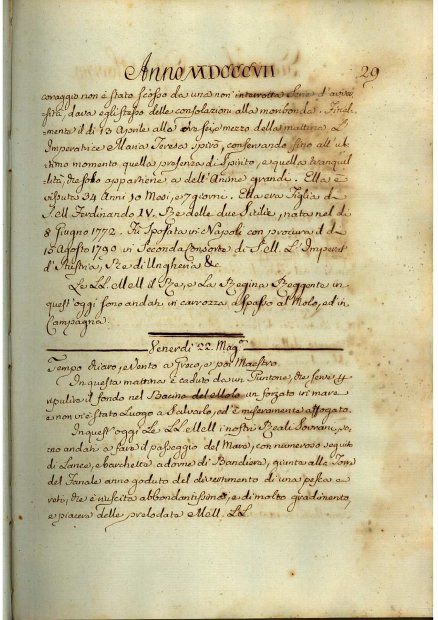 Anno MDCCCVII
29
coraggio non è stato scosso da una non interrotta serie d'avver
sità, dava egli stesso delle consolazioni alla moribonda. Final
mente il dì 13 Aprile alla ora sei e mezzo della mattina L'
Imperatrice Maria Teresa spirò, conservando sino all'ul
timo momento quella presenza di spirito, e quella tranquil
lità, che solo appartiene a dell'Anime grandi. Ella è
vissuta 34 Anni 10 Mesi, e 7 giorni. Ella era Figlia di
S. M. Ferdinando IV. Re delle due Sicilie, nata nel dì
8 Giugno 1772. Fu sposata in Napoli con procura il dì
15 Agosto 1790 in seconda consorte di S. M. L'Imperat
d'Austria, Re di Ungheria &c
Le LL. MM. il Re, e La Regina Reggente in
quest'oggi sono andati in carrozza a spasso al Molo, ed in
Campagna.
Venerdì 22. Magº
Tempo chiaro, e Vento a Greco, e poi Maestro.
In questa mattina è caduto da un Puntone, che serve
ripulire il fondo nel Bacino del Molo un forzato in mare
e non vi è stato Luogo a Salvarlo, ed è miseramente affogato.
In quest'oggi Le LL. MM. i nostri Reali Sovrani,
no andati a fare il passeggio del Mare, con numeroso seguito
di Lance, e barchette adorne di Bandiere, giunti alla Torre
del Fanale anno goduto del divertimento di una pesca a
reti, che è riuscita abbondantissima, e di molto gradimento,
e piacere delle prelodate MM. LL.